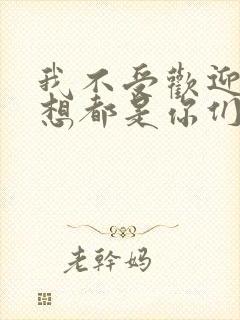 我不受歡迎
想都是你们
老幹妈